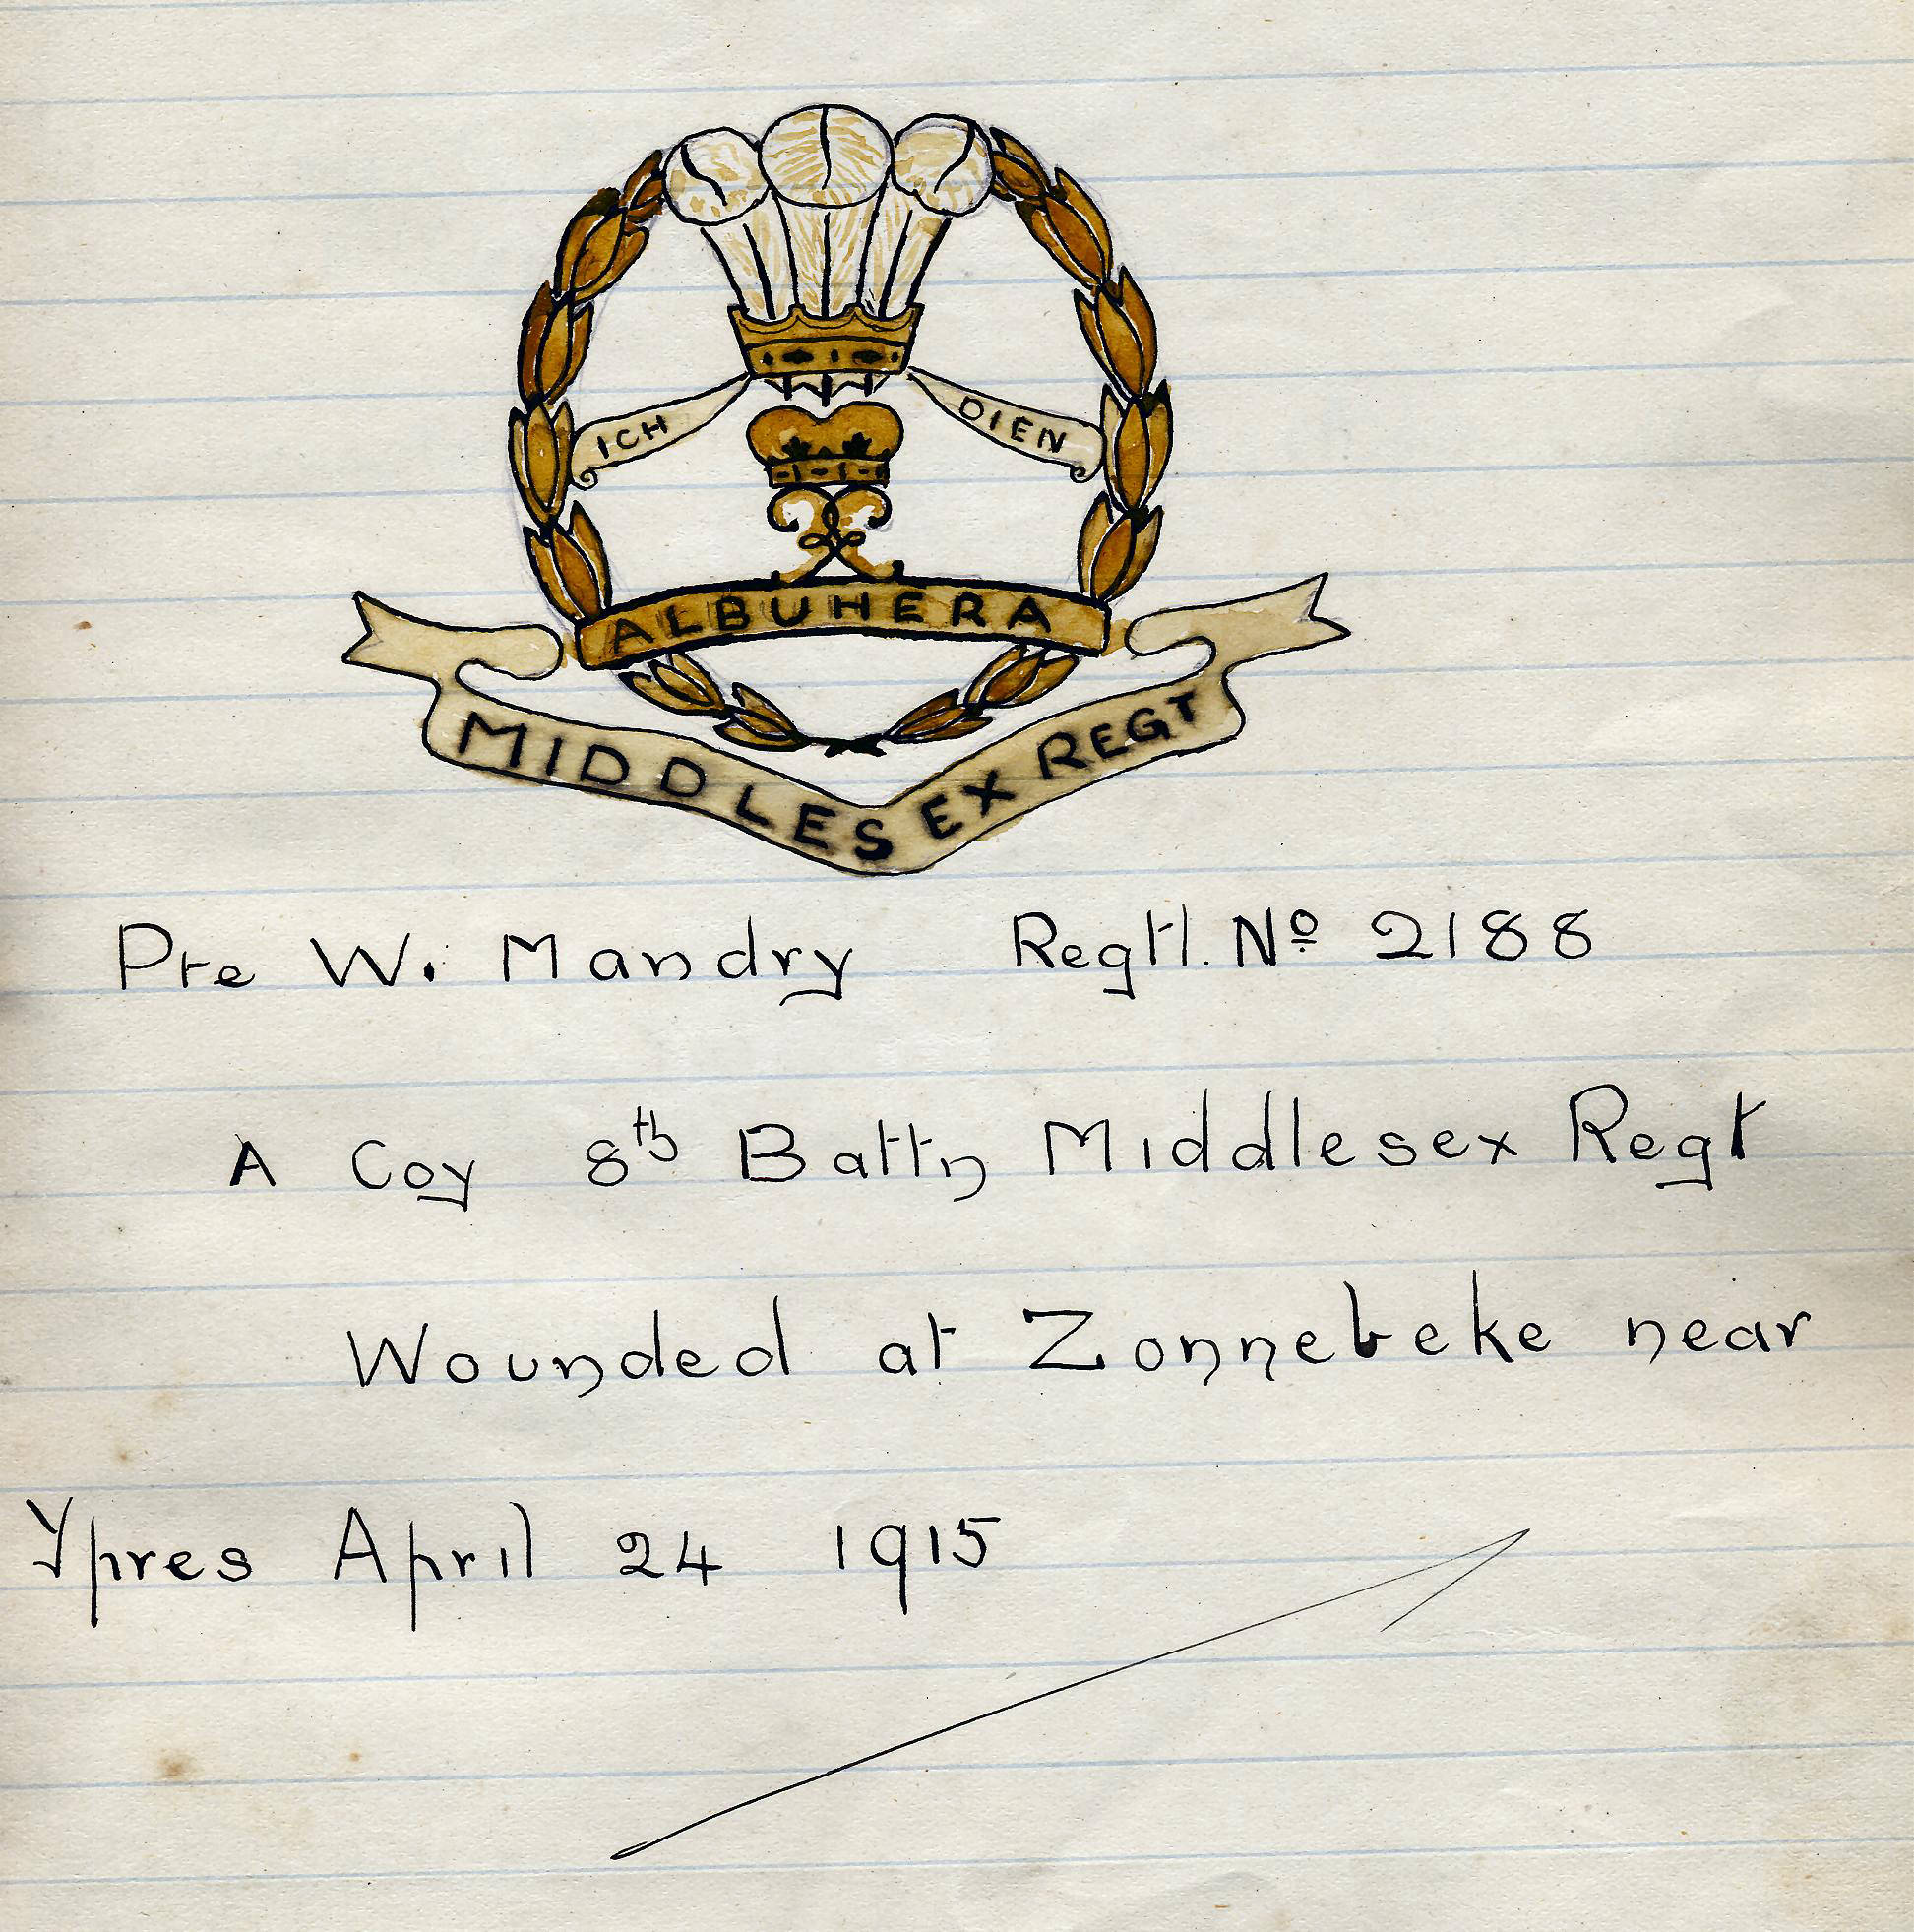 ICH DIEN
ALBUHERA
MIDDLESEX REGT
Pte W. Mandry Regtl. Nº 2188
A Coy 8th Battn Middlesex Regt
Wounded at Zonnebeke near
Ypres April 24 1915